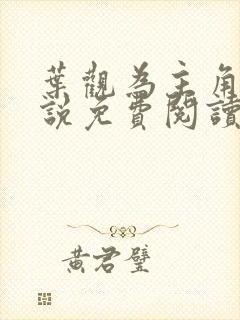 葉觀為主角
說免費閱讀
黃君璧